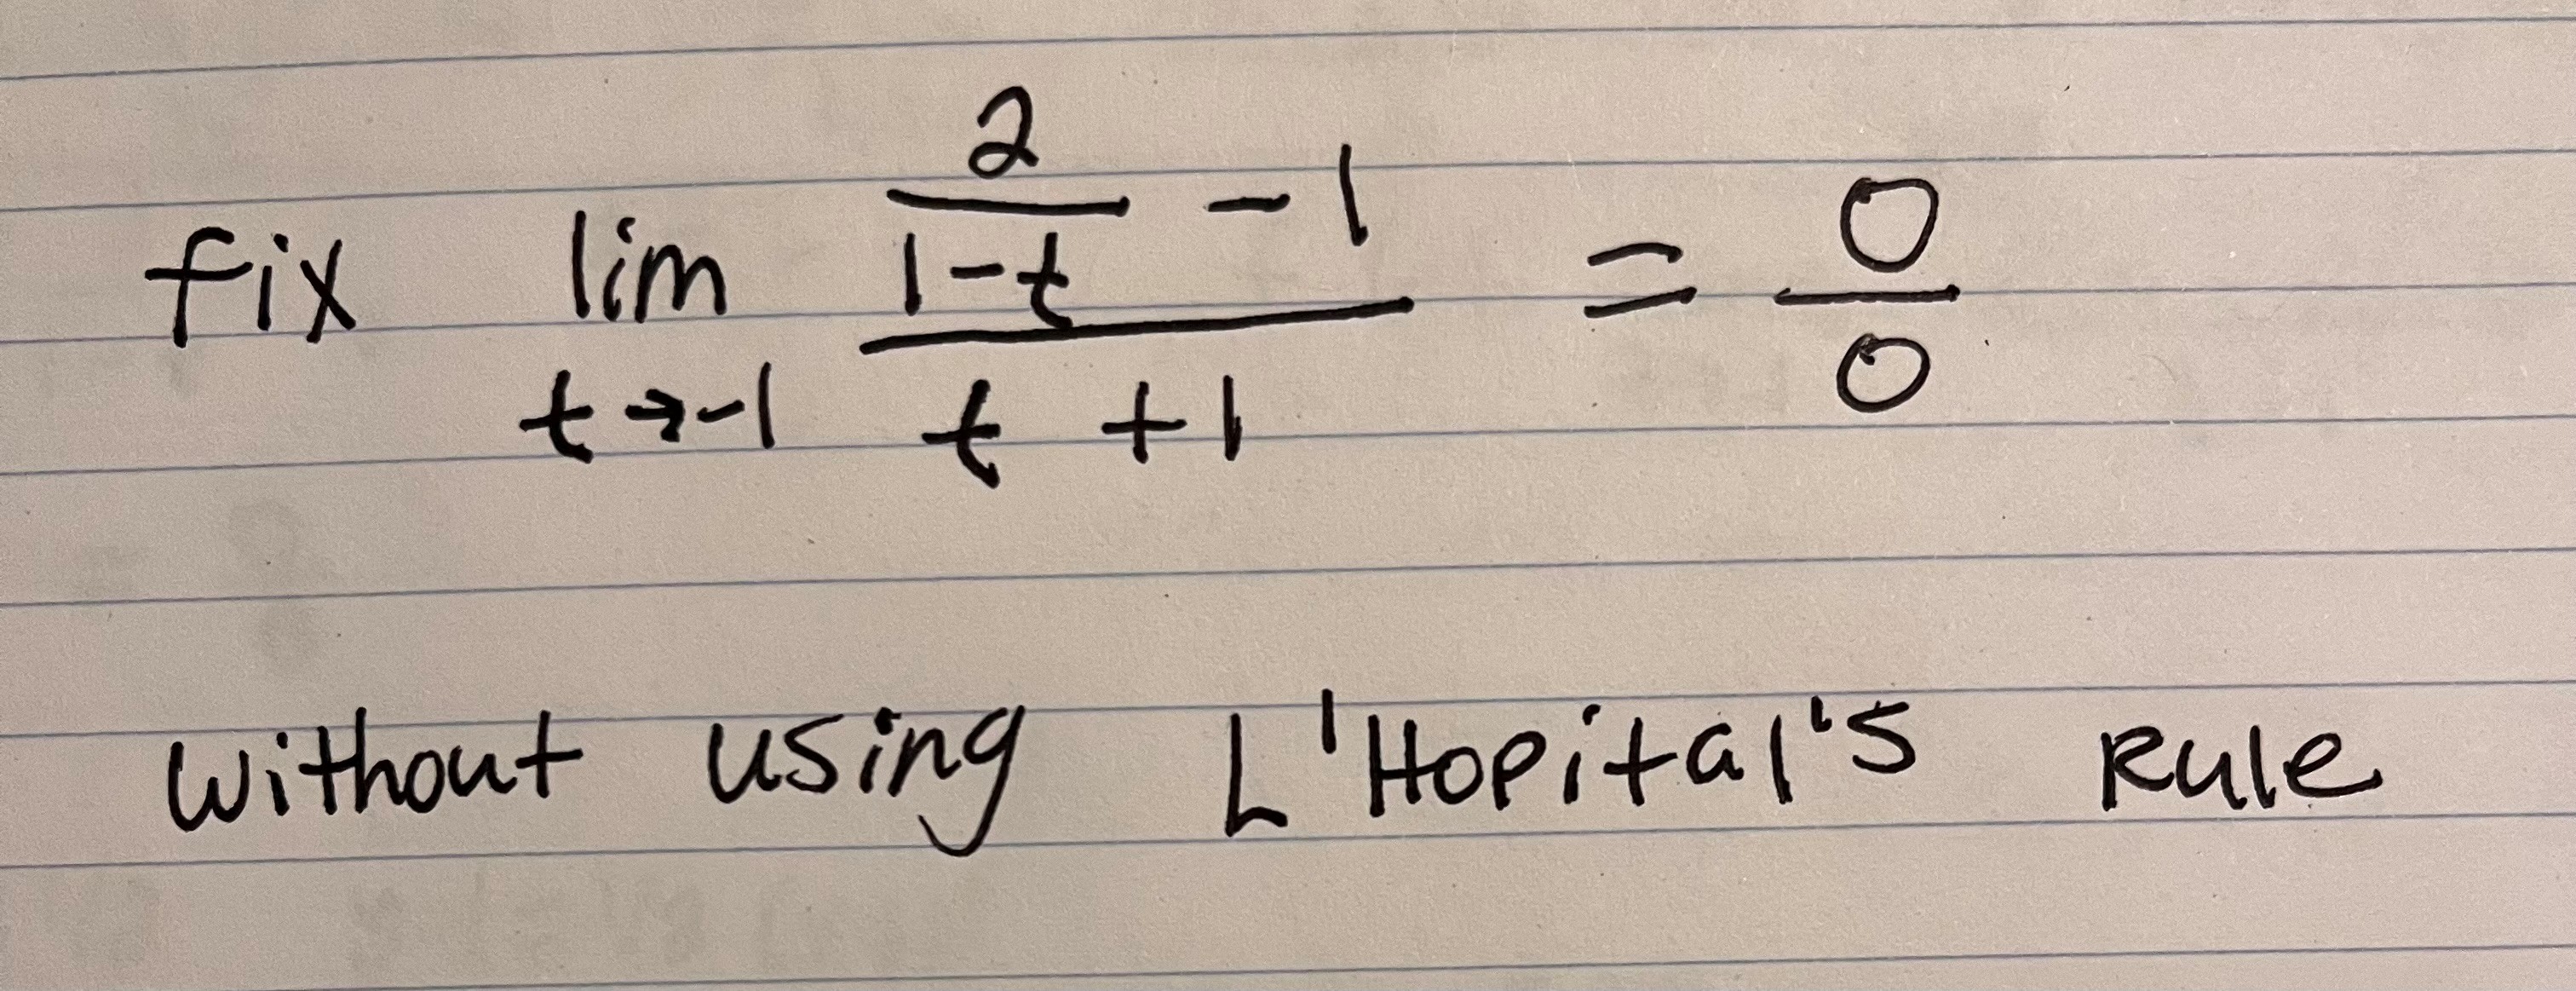 fix lim t→-1 (2/(1-t) - 1)/(t + 1) = 0/0
without using L'Hopital's Rule